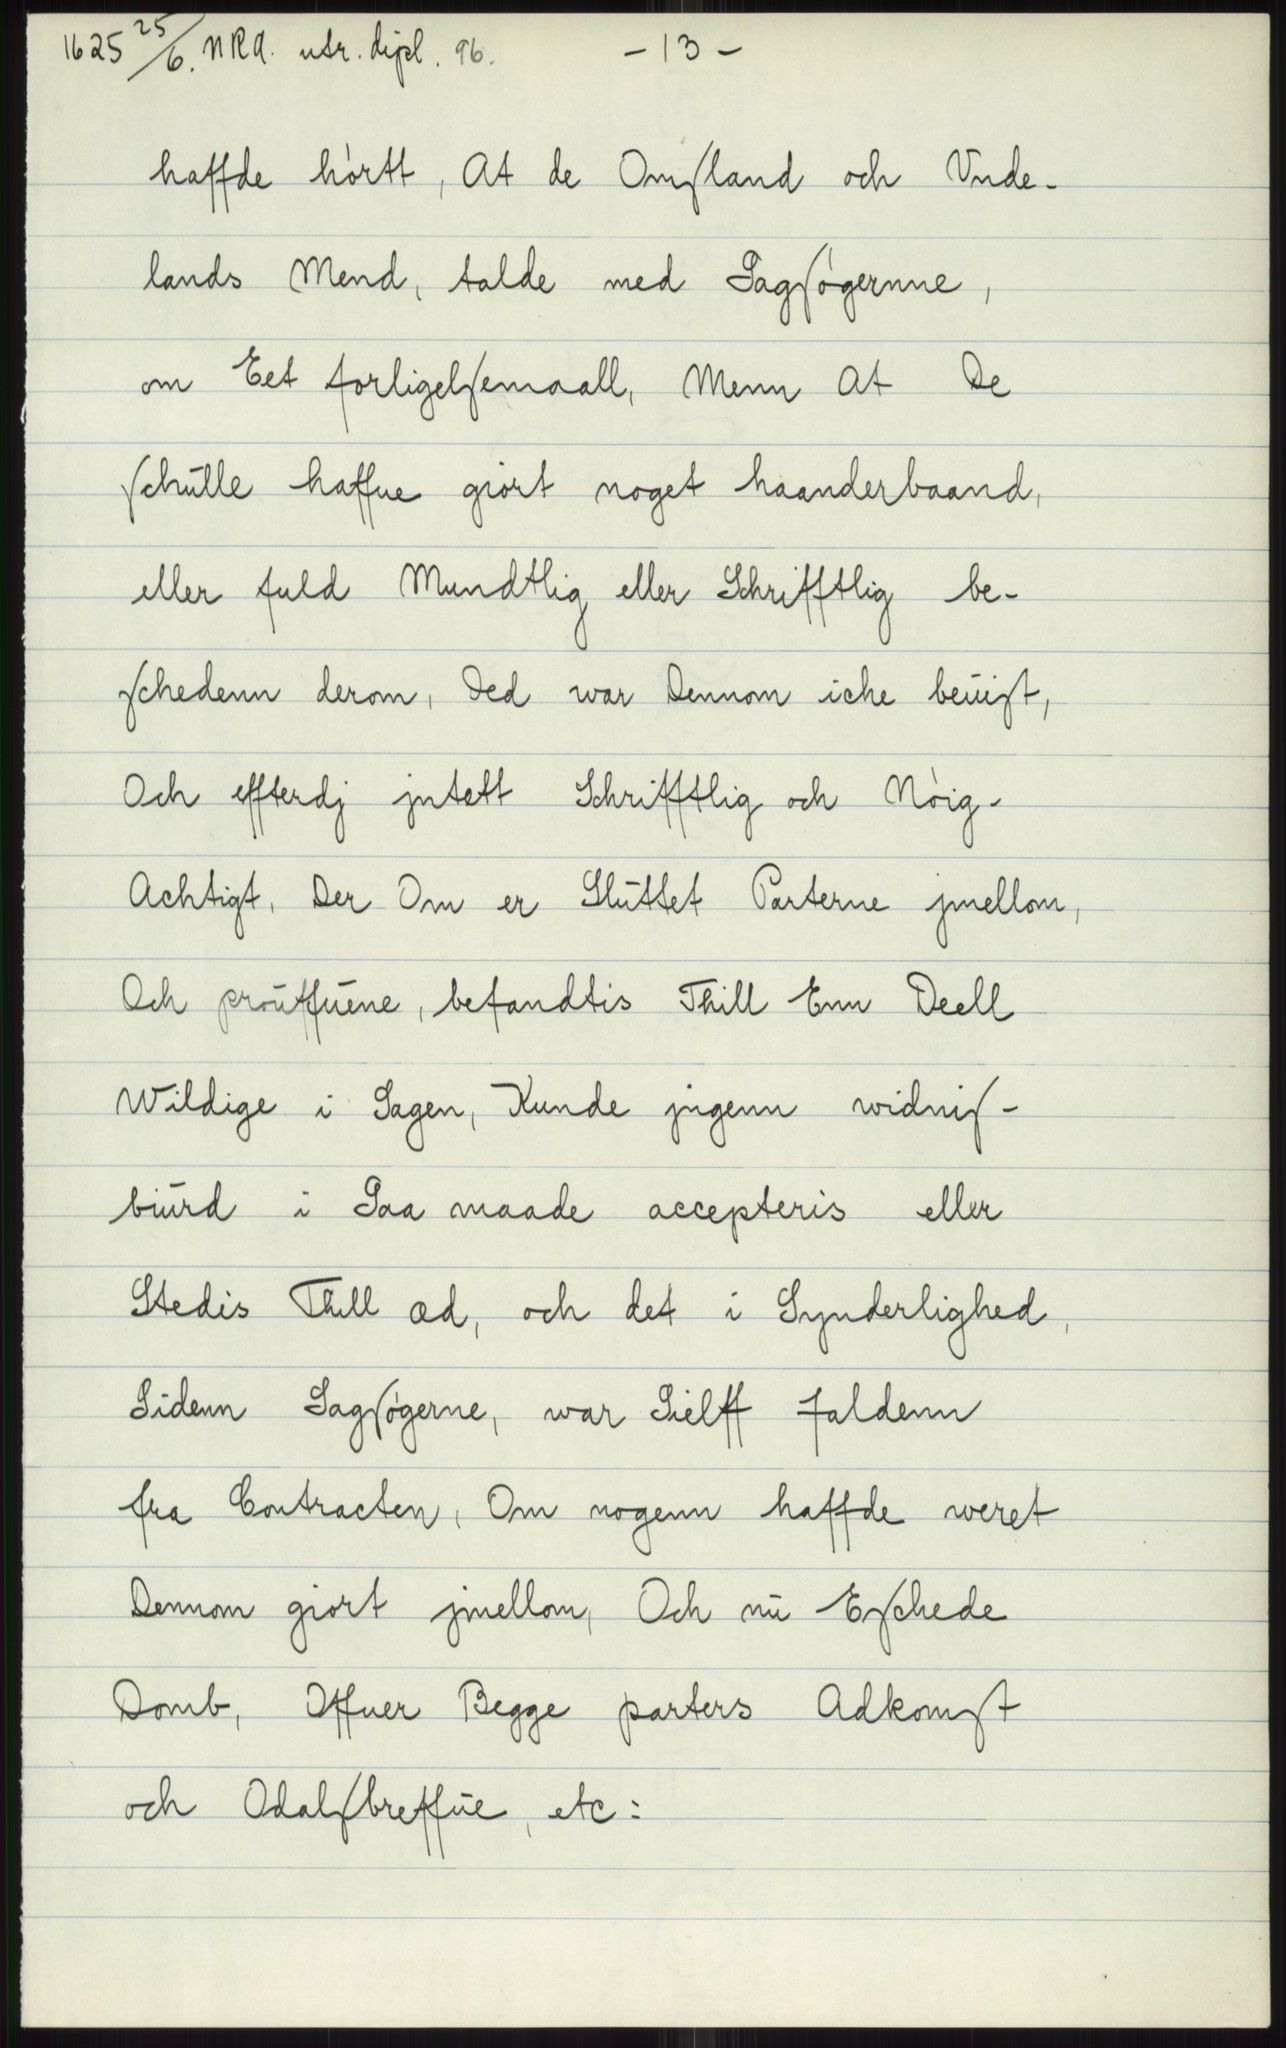 1625 25/6. NRA. utr. dipl. 96. - 13 -
haffde hórtt, At de Omſland och Vnde-
lands Mend, talde med Sagſógernne,
om Eet forligelſemaall, Menn At De
ſchúlle haffue giórt noget haanderbaand,
eller fuld Mundtlig eller Schrifftlig be-
ſchedenn derom, Ded war Dennom iche beúiſt,
Och effterdj jntett Schrifftlig och Nóig-
Achtigt, Der Om er Slúttet Parterne jmellom,
Och proúffúene, befandtis Thill Enn Deell
Wildige i Sagen, Kunde jngenn widniſ-
biúrd i Saa maade accepteris eller
Stedis Thill æd, och det i Synderlighed,
Sidenn Sagſógerne, war Sielff faldenn
fra Contracten, Om nogenn haffde weret
Dennom giort jmellom, Och nú Eſchede
Domb, Offuer Begge parters Adkomſt
och Odalſbreffúe, etc: